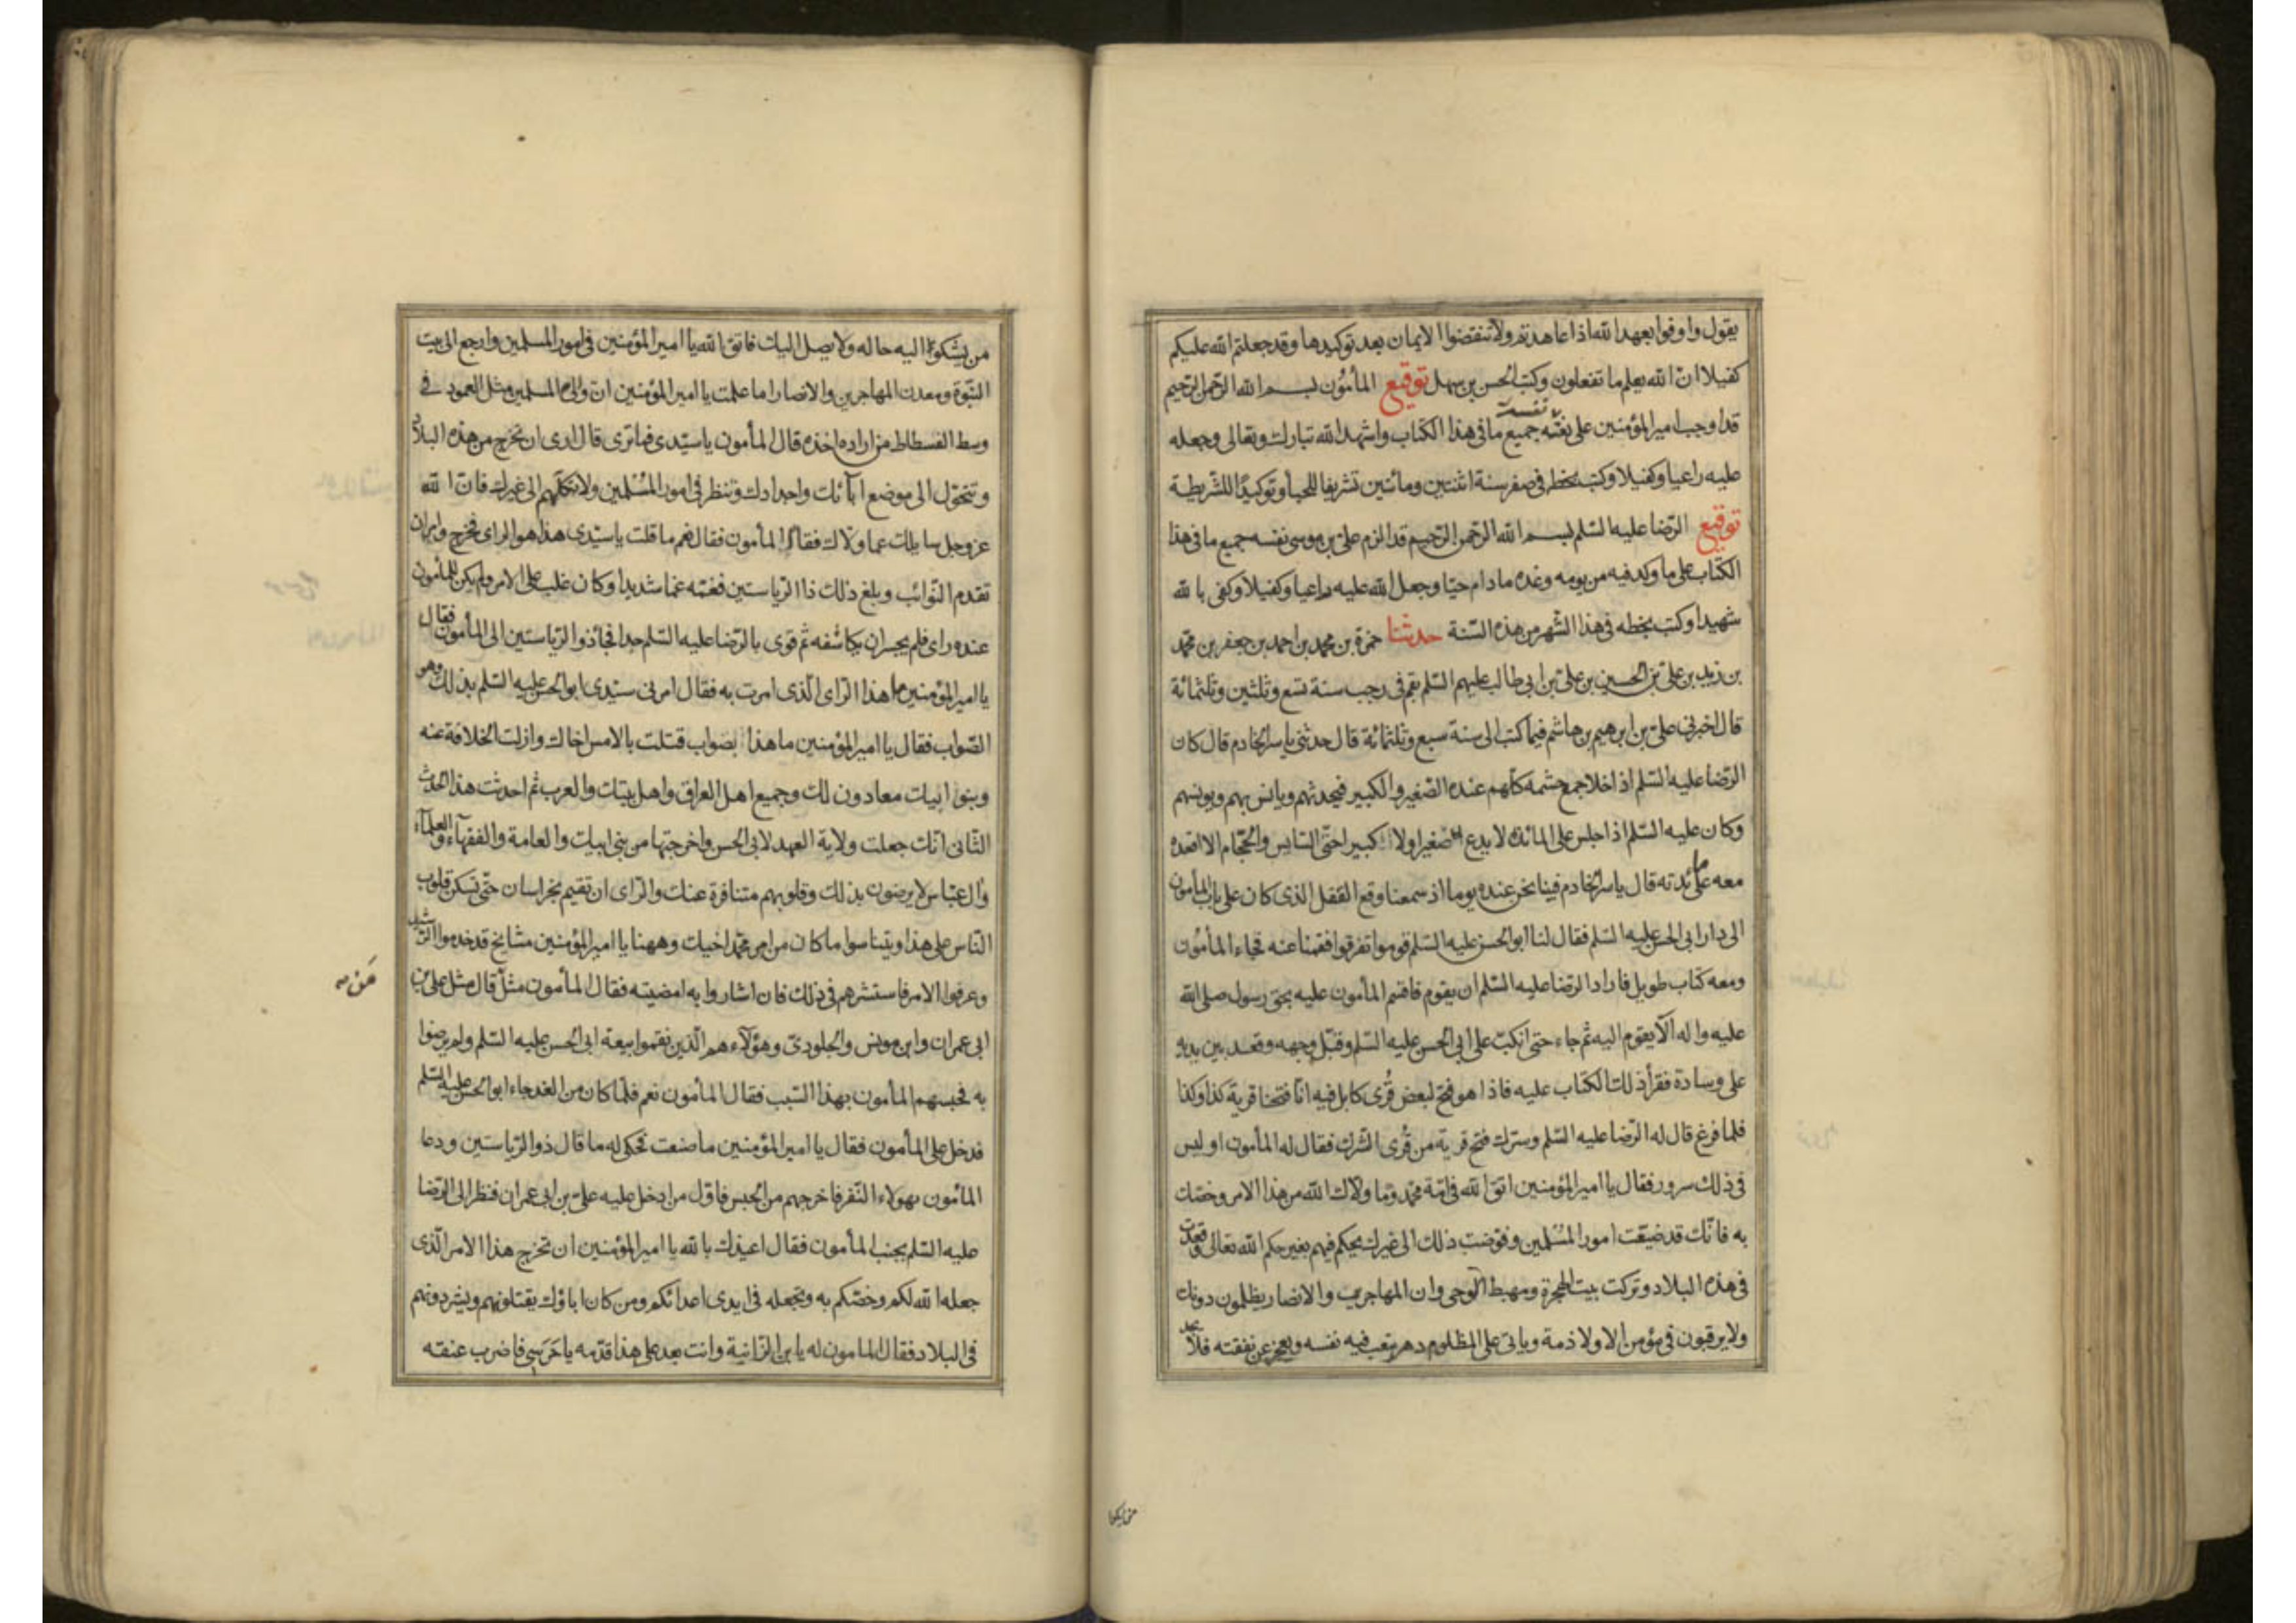 يقول واوفوا بعهد الله اذا عاهدتم ولا تنقضوا الايمان بعد توكيدها وقد جعلتم الله عليكم
كفيلا ان الله يعلم ما تفعلون وكتب الحسن بن سهل توقيع المأمون بسم الله الرحمن الرحيم
قد اوجب امير المؤمنين على نفسه جميع ما فى هذا الكتاب واشهد الله تبارك وتعالى وجعله
عليه راعيا وكفيلا وكتب بخطه فى صفر سنة اثنتين ومائتين تشريفا للحبا وتوكيدا للشريطة
توقيع الرضا عليه السلم بسم الله الرحمن الرحيم قد الزم على بن موسى نفسه جميع ما فى هذا
الكتاب على ما وكد فيه من يومه وغده ما دام حيا وجعل الله عليه راعيا وكفيلا وكفى بالله
شهيدا وكتب بخطه فى هذا الشهر من هذه السنة حدثنا حمزة بن محمد بن احمد بن جعفر بن محمد
بن زيد بن على بن الحسين بن على بن ابى طالب عليهم السلم بقم فى رجب سنة تسع وثلثين وثلثمائة
قال اخبرنى على بن ابرهيم بن هاشم فيما كتب الى سنة سبع وثلثمائة قال حدثنى ياسر الخادم قال كان
الرضا عليه السلم اذا خلا جمع حشمه كلهم عنده الصغير والكبير فيحدثهم ويانس بهم ويونسهم
وكان عليه السلم اذا جلس على المائدة لا يدع صغيرا ولا كبيرا حتى السايس والحجام الا اقعده
معه على مائدته قال ياسر الخادم فبينا نحن عنده يوما اذ سمعنا وقع القفل الذى كان على باب المأمون
الى دار ابى الحسن عليه السلم فقال لنا ابو الحسن عليه السلم قوموا تفرقوا فقمنا عنه فجاء المأمون
ومعه كتاب طويل فاراد الرضا عليه السلم ان يقوم فاقسم المأمون عليه بحق رسول صلى الله
عليه واله الا يقوم اليه ثم جاء حتى انكب على ابى الحسن عليه السلم وقبل وجهه وقعد بين يديه
على وسادة فقرأ ذلك الكتاب عليه فاذا هو فتح لبعض قرى كابل فيه انا فتحنا قرية كذا وكذا
فلما فرغ قال له الرضا عليه السلم وسرك فتح قرية من قرى الشرك فقال له المأمون او ليس
فى ذلك سرور فقال يا امير المؤمنين اتق الله فى امة محمد وما ولاك الله من هذا الامر وخصك
به فانك قد ضيعت امور المسلمين وفوضت ذلك الى غيرك يحكم فيهم بغير حكم الله تعالى وقعدت
فى هذه البلاد وتركت بيت الهجرة ومهبط الوحى وان المهاجرين والانصار يظلمون دونك
ولا يرقبون فى مؤمن الا ولا ذمة وياتى على المظلوم دهر يتعب فيه نفسه ويعجز عن نفقته فلا يجد
من يشكو اليه حاله ولا يصل اليك فاتق الله يا امير المؤمنين فى امور المسلمين وارجع الى بيت
النبوة ومعدن المهاجرين والانصار اما علمت يا امير المؤمنين ان والى المسلمين مثل العمود فى
وسط الفسطاط من اراده اخذه قال المأمون يا سيدى فما ترى قال ارى ان تخرج من هذه البلاد
وتتحول الى موضع آبائك واجدادك وتنظر فى امور المسلمين ولا تكلهم الى غيرك فان الله
عز وجل سايلك عما ولاك فقام المأمون فقال نعم ما قلت يا سيدى هذا هو الراى فخرج وامر ان
تقدم النوائب وبلغ ذلك ذا الرياستين فغمه غما شديدا وكان غلب على الامر ولم يكن للمأمون
عنده راى فلم يجسر ان يكاشفه ثم قوى بالرضا عليه السلم جدا فجاء ذو الرياستين الى المأمون فقال
يا امير المؤمنين ما هذا الراى الذى امرت به فقال امرنى سيدى ابو الحسن عليه السلم بذلك وهو
الصواب فقال يا امير المؤمنين ما هذا بصواب قتلت بالامس اخاك وازلت الخلافة عنه
وبنو ابيك معادون لك وجميع اهل العراق واهل بيتك والعرب ثم احدثت هذا الحدث
الثانى انك جعلت ولاية العهد لابى الحسن واخرجتها من بنى ابيك والعامة والفقهاء والعلمآء
وال العباس لا يرضون بذلك وقلوبهم متنافرة عنك والراى ان تقيم بخراسان حتى تسكن قلوب
الناس على هذا ويتناسوا ما كان من امر محمد اخيك وههنا يا امير المؤمنين مشايخ قد خدموا الرشيد
وعرفوا الامر فاستشرهم فى ذلك فان اشاروا به امضيته فقال المأمون مثل قال مثل على بن
ابى عمران وابن مونس والجلودى وهؤلاء هم الذين نقموا بيعة ابى الحسن عليه السلم ولم يرضوا
به فحبسهم المأمون بهذا السبب فقال المأمون نعم فلما كان من الغد جاء ابو الحسن عليه السلم
فدخل على المأمون فقال يا امير المؤمنين ما صنعت فحكى له ما قال ذو الرياستين ودعا
المأمون بهولاء النفر فاخرجهم من الحبس فاول من ادخل عليه على بن ابى عمران فنظر الى الرضا
عليه السلم بجنب المأمون فقال اعيذك بالله يا امير المؤمنين ان تخرج هذا الامر الذى
جعله الله لكم وخصكم به وتجعله فى ايدى اعدائكم ومن كان اباؤك يقتلونهم ويشردونهم
فى البلاد فقال المامون له يا بن الزانية وانت بعد على هذا قدمه يا حرسى فاضرب عنقه